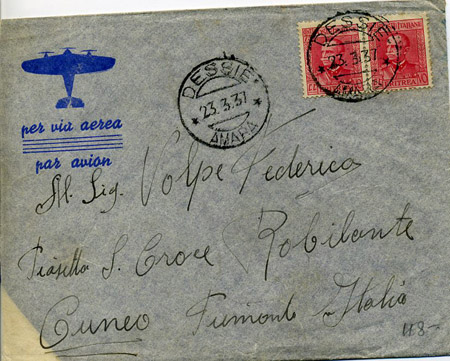 per via aerea
par avion
DESSIE
23.3.37
AMARA
DESSIE
23.3.37
AMARA
ITALIANE
ERITREA
Al Sig. Volpe Federico
Piazzetta S. Croce Robilante
Cuneo Piemonte Italia
118-